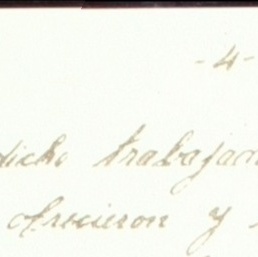 -4-
dicho trabajan
ofrecieron y